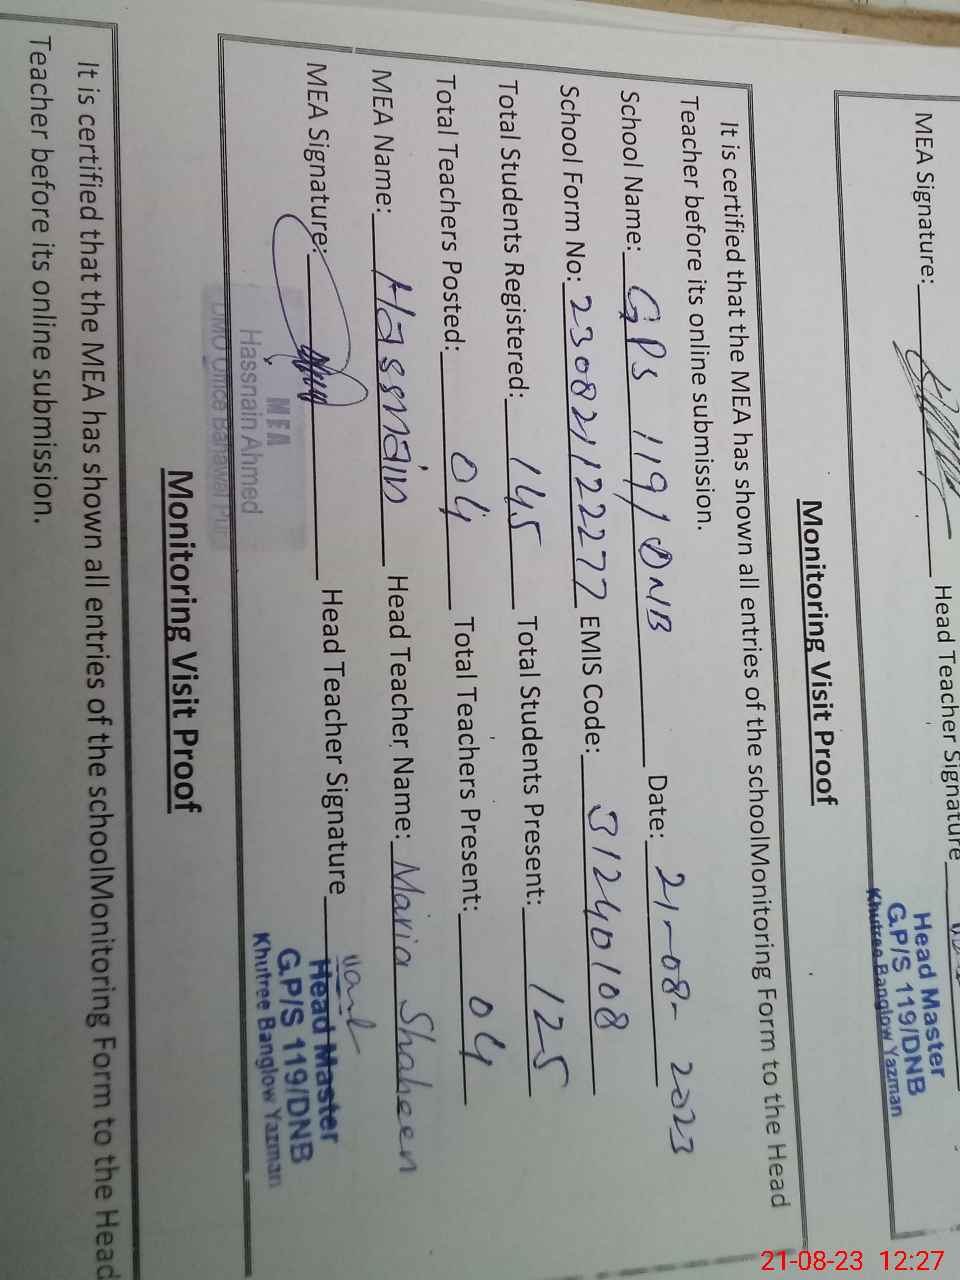 MEA Signature: Head Teacher Signature
Head Master
G.P/S 119/DNB
Khutree Banglow Yazman
Monitoring Visit Proof
It is certified that the MEA has shown all entries of the schoolMonitoring Form to the Head
Teacher before its online submission.
School Name: GPS 119/DNB Date: 21-08-2023
School Form No: 230821122277 EMIS Code: 31240108
Total Students Registered: 145 Total Students Present: 125
Total Teachers Posted: 04 Total Teachers Present: 04
MEA Name: Hassnain Head Teacher Name: Maria Shaheen
MEA Signature: Head Teacher Signature
MEA
Hassnain Ahmed
DMO Office Bahawal Pur
Head Master
G.P/S 119/DNB
Khutree Banglow Yazman
Monitoring Visit Proof
It is certified that the MEA has shown all entries of the schoolMonitoring Form to the Head
Teacher before its online submission.
21-08-23 12:27